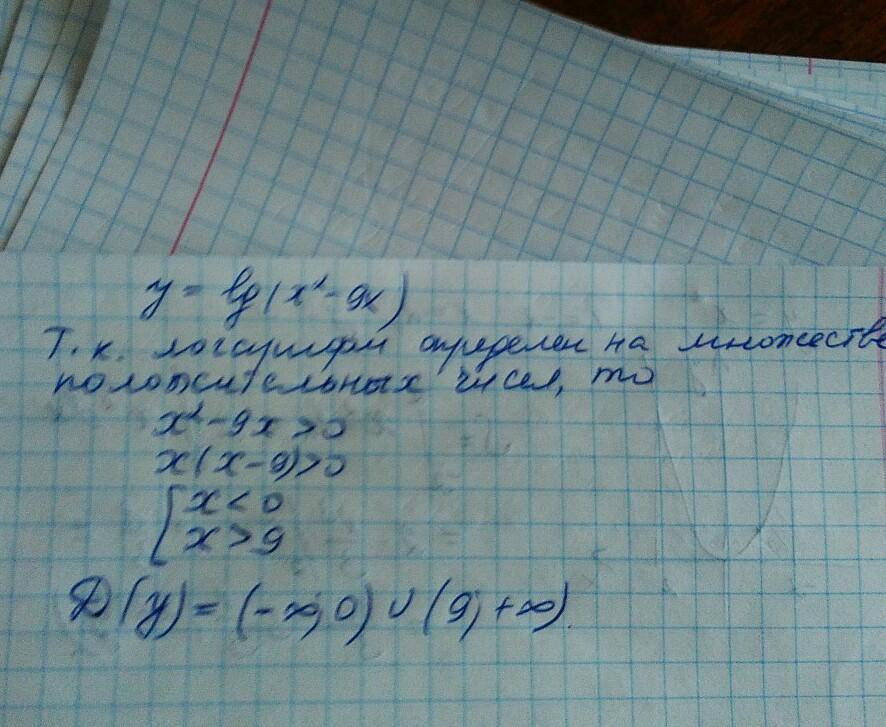 y = lg(x² - 9x)
Т.к. логарифм определен на множестве
положительных чисел, то
x² - 9x > 0
x(x - 9) > 0
[ x < 0
x > 9
D(y) = (-∞; 0) ∪ (9; +∞).